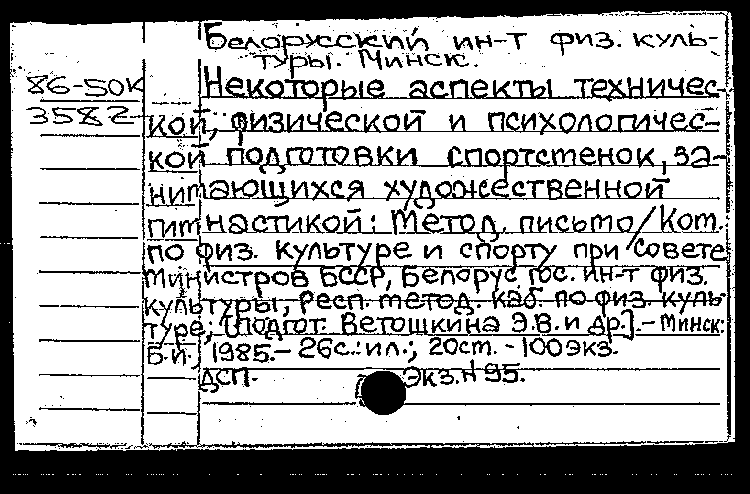 Белорусский ин-т физ. куль-
туры. Минск.
86-50К
3582
Некоторые аспекты техничес-
кой, физической и психологичес-
кой подготовки спортсменок, за-
нимающихся художественной
гимнастикой: Метод. письмо/Ком.
по физ. культуре и спорту при Совете
Министров БССР, Белорус. гос. ин-т физ.
культуры, Респ. метод. каб. по физ. куль-
туре; [Подгот. Ветошкина Э.В. и др.]. - Минск:
Б.и., 1985. - 26с.: ил.; 20см. - 100экз.
ДСП. Экз.N 95.